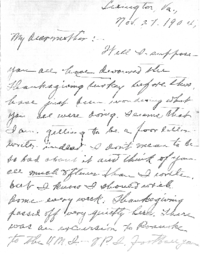 Lexington, Va,
Nov. 27, 190
My dear mother:
Well I suppose
you all have devoured the
thanksgiving turkey before this
have just been wondering what
you all were doing. I know that
I am getting to be a poor letter
writer indeed I don't mean to be
so bad about it and think of you
all much oftener than I write,
but I know I should write
home every week. Thanksgiving
passed off very quietly here. There
was an excursion to Roanoke
to the V.M.I. - V.P.I. foot ball game